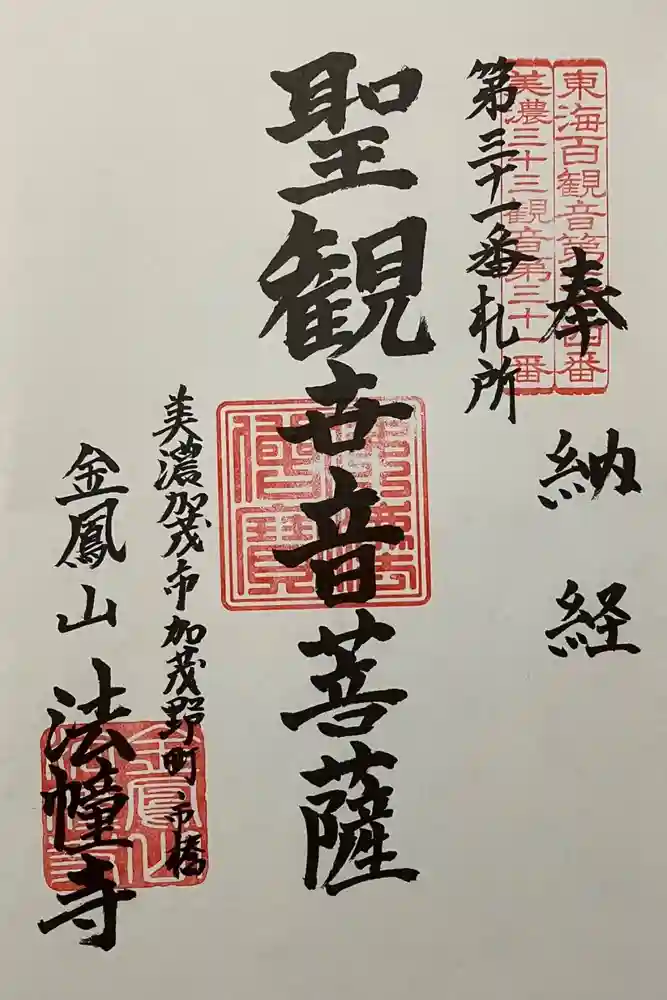 奉納経
東海百観音第 四番
美濃三十三観音第三十一番
第三十一番札所
聖観世音菩薩
佛法僧寳
美濃加茂市加茂野町市橋
金鳳山法幢寺
金鳳山